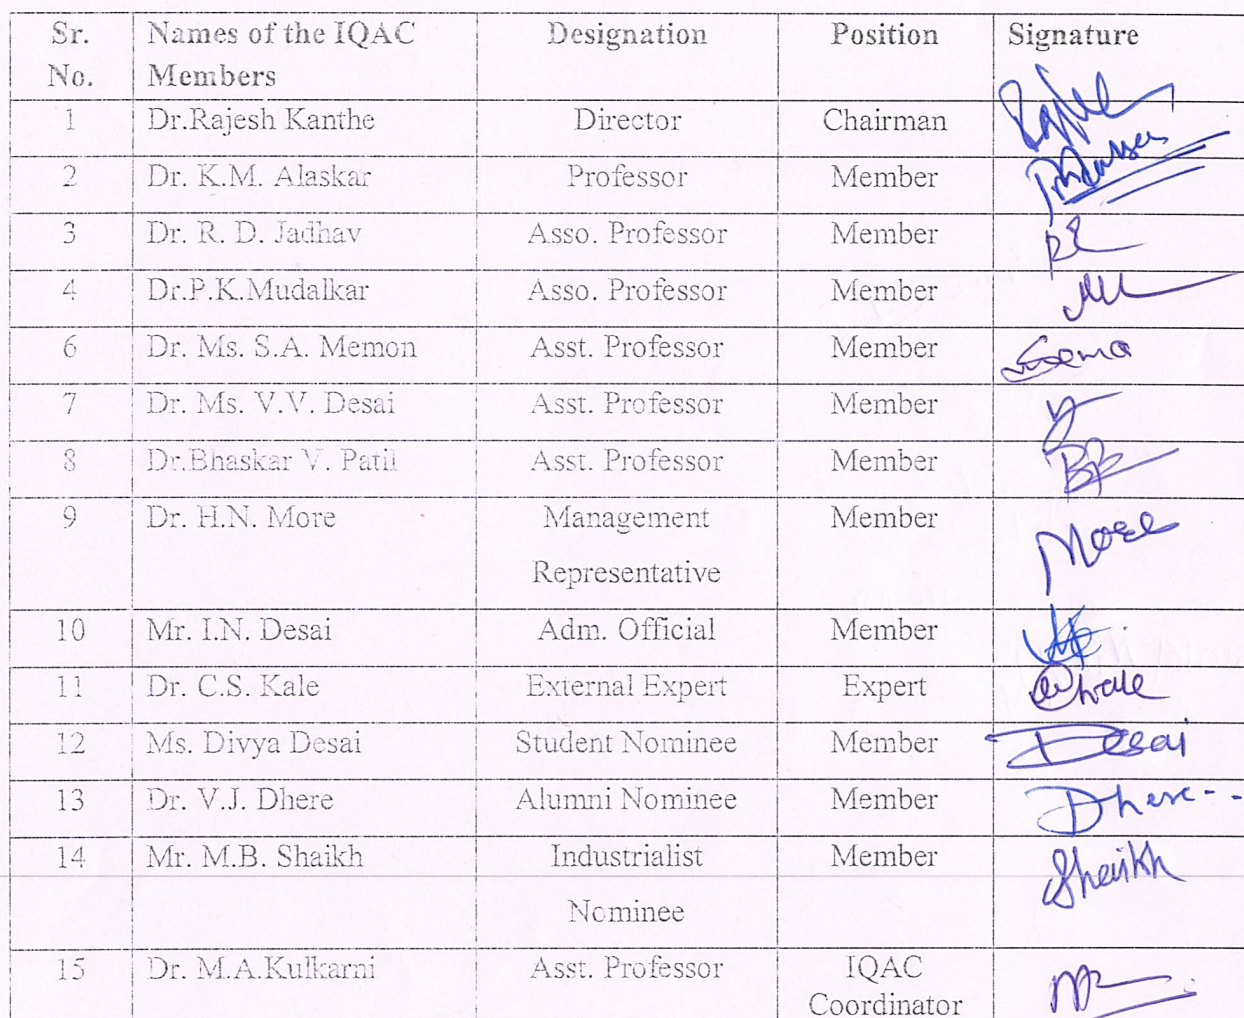 Sr. No. Names of the IQAC Members Designation Position Signature
1 Dr.Rajesh Kanthe Director Chairman
2 Dr. K.M. Alaskar Professor Member
3 Dr. R. D. Jadhav Asso. Professor Member
4 Dr.P.K.Mudalkar Asso. Professor Member
6 Dr. Ms. S.A. Memon Asst. Professor Member
7 Dr. Ms. V.V. Desai Asst. Professor Member
8 Dr.Bhaskar V. Patil Asst. Professor Member
9 Dr. H.N. More Management Representative Member More
10 Mr. I.N. Desai Adm. Official Member
11 Dr. C.S. Kale External Expert Expert
12 Ms. Divya Desai Student Nominee Member Desai
13 Dr. V.J. Dhere Alumni Nominee Member Dhere--
14 Mr. M.B. Shaikh Industrialist Nominee Member Shaikh
15 Dr. M.A.Kulkarni Asst. Professor IQAC Coordinator